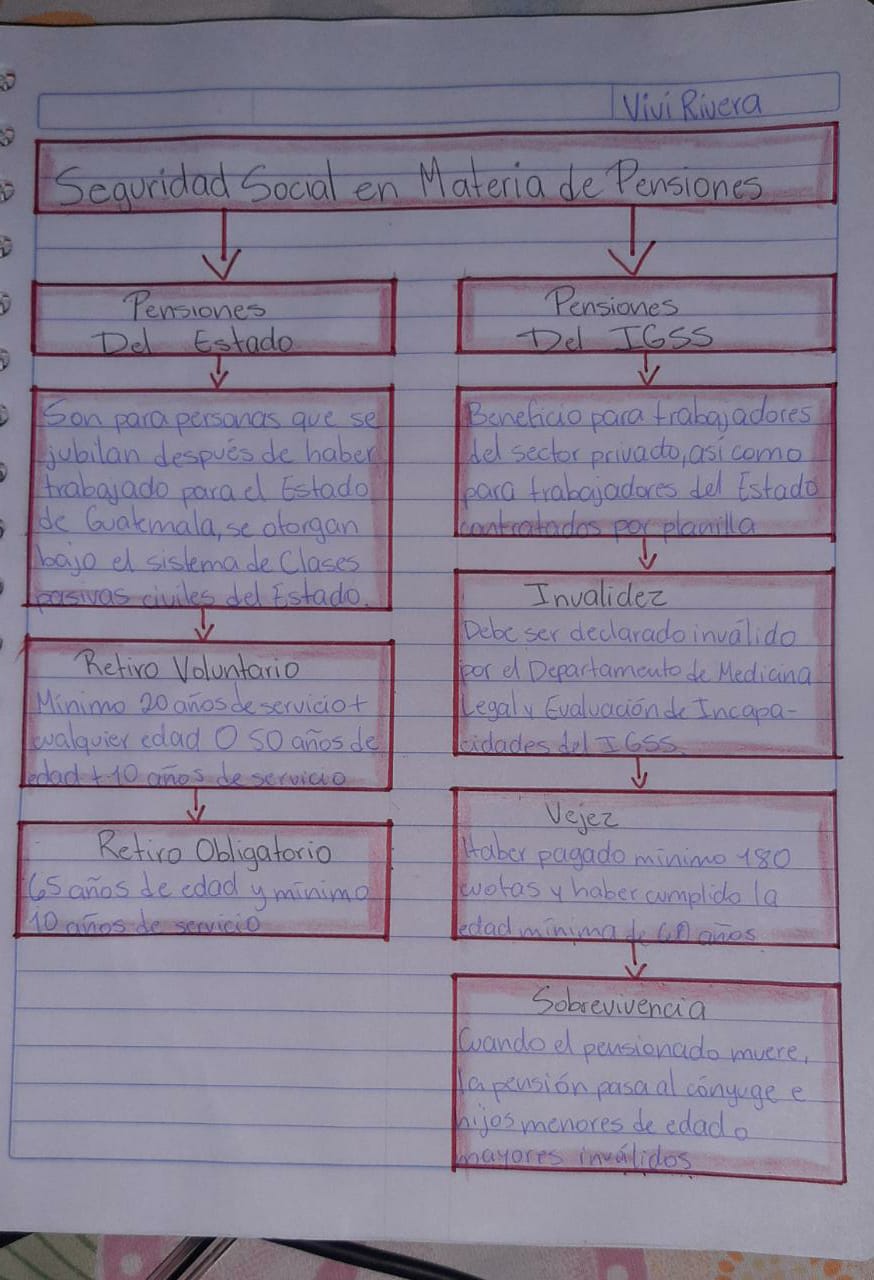 Vivi Rivera
Seguridad Social en Materia de Pensiones
Pensiones
Del Estado
Son para personas que se
jubilan después de haber
trabajado para el Estado
de Guatemala, se otorgan
bajo el sistema de Clases
pasivas civiles del Estado.
Retiro Voluntario
Mínimo 20 años de servicio +
cualquier edad O 50 años de
edad + 10 años de servicio
Retiro Obligatorio
65 años de edad y mínimo
10 años de servicio
Pensiones
Del IGSS
Beneficio para trabajadores
del sector privado, así como
para trabajadores del Estado
contratados por planilla
Invalidez
Debe ser declarado inválido
por el Departamento de Medicina
Legal y Evaluación de Incapa-
cidades del IGSS.
Vejez
Haber pagado mínimo 180
cuotas y haber cumplido la
edad mínima de 60 años
Sobrevivencia
Cuando el pensionado muere,
la pensión pasa al cónyuge e
hijos menores de edad o
mayores inválidos